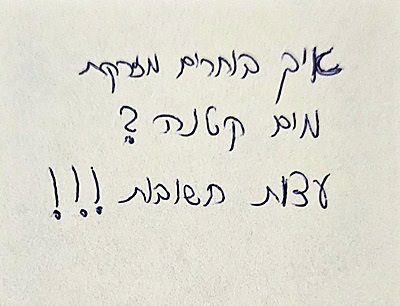 איך בוחרים מזרקת
מים קטנה?
עצות חשובות!!!